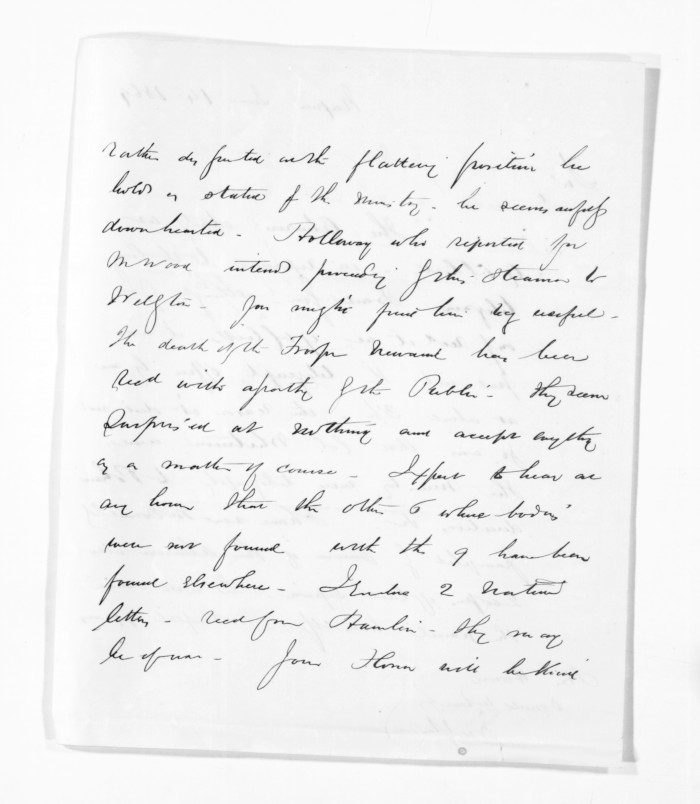 rather disgusted with flattering position he
holds as stated by the Ministry - he seems
downhearted - Holloway who reported for
McWood intends proceeding by this Steamer to
Welgton - You might find him useful -
The death of the Troops has been
recd with apathy by the Public - they seem
Surprised at nothing and accept anything
as a matter of course - I expect to hear at
any hour that the other 6 whose bodies
were not found with the 9 have been
found elsewhere - I enclose 2 native
letters - recd from Hamlin - they may
be of use - Your Honor will be Kind